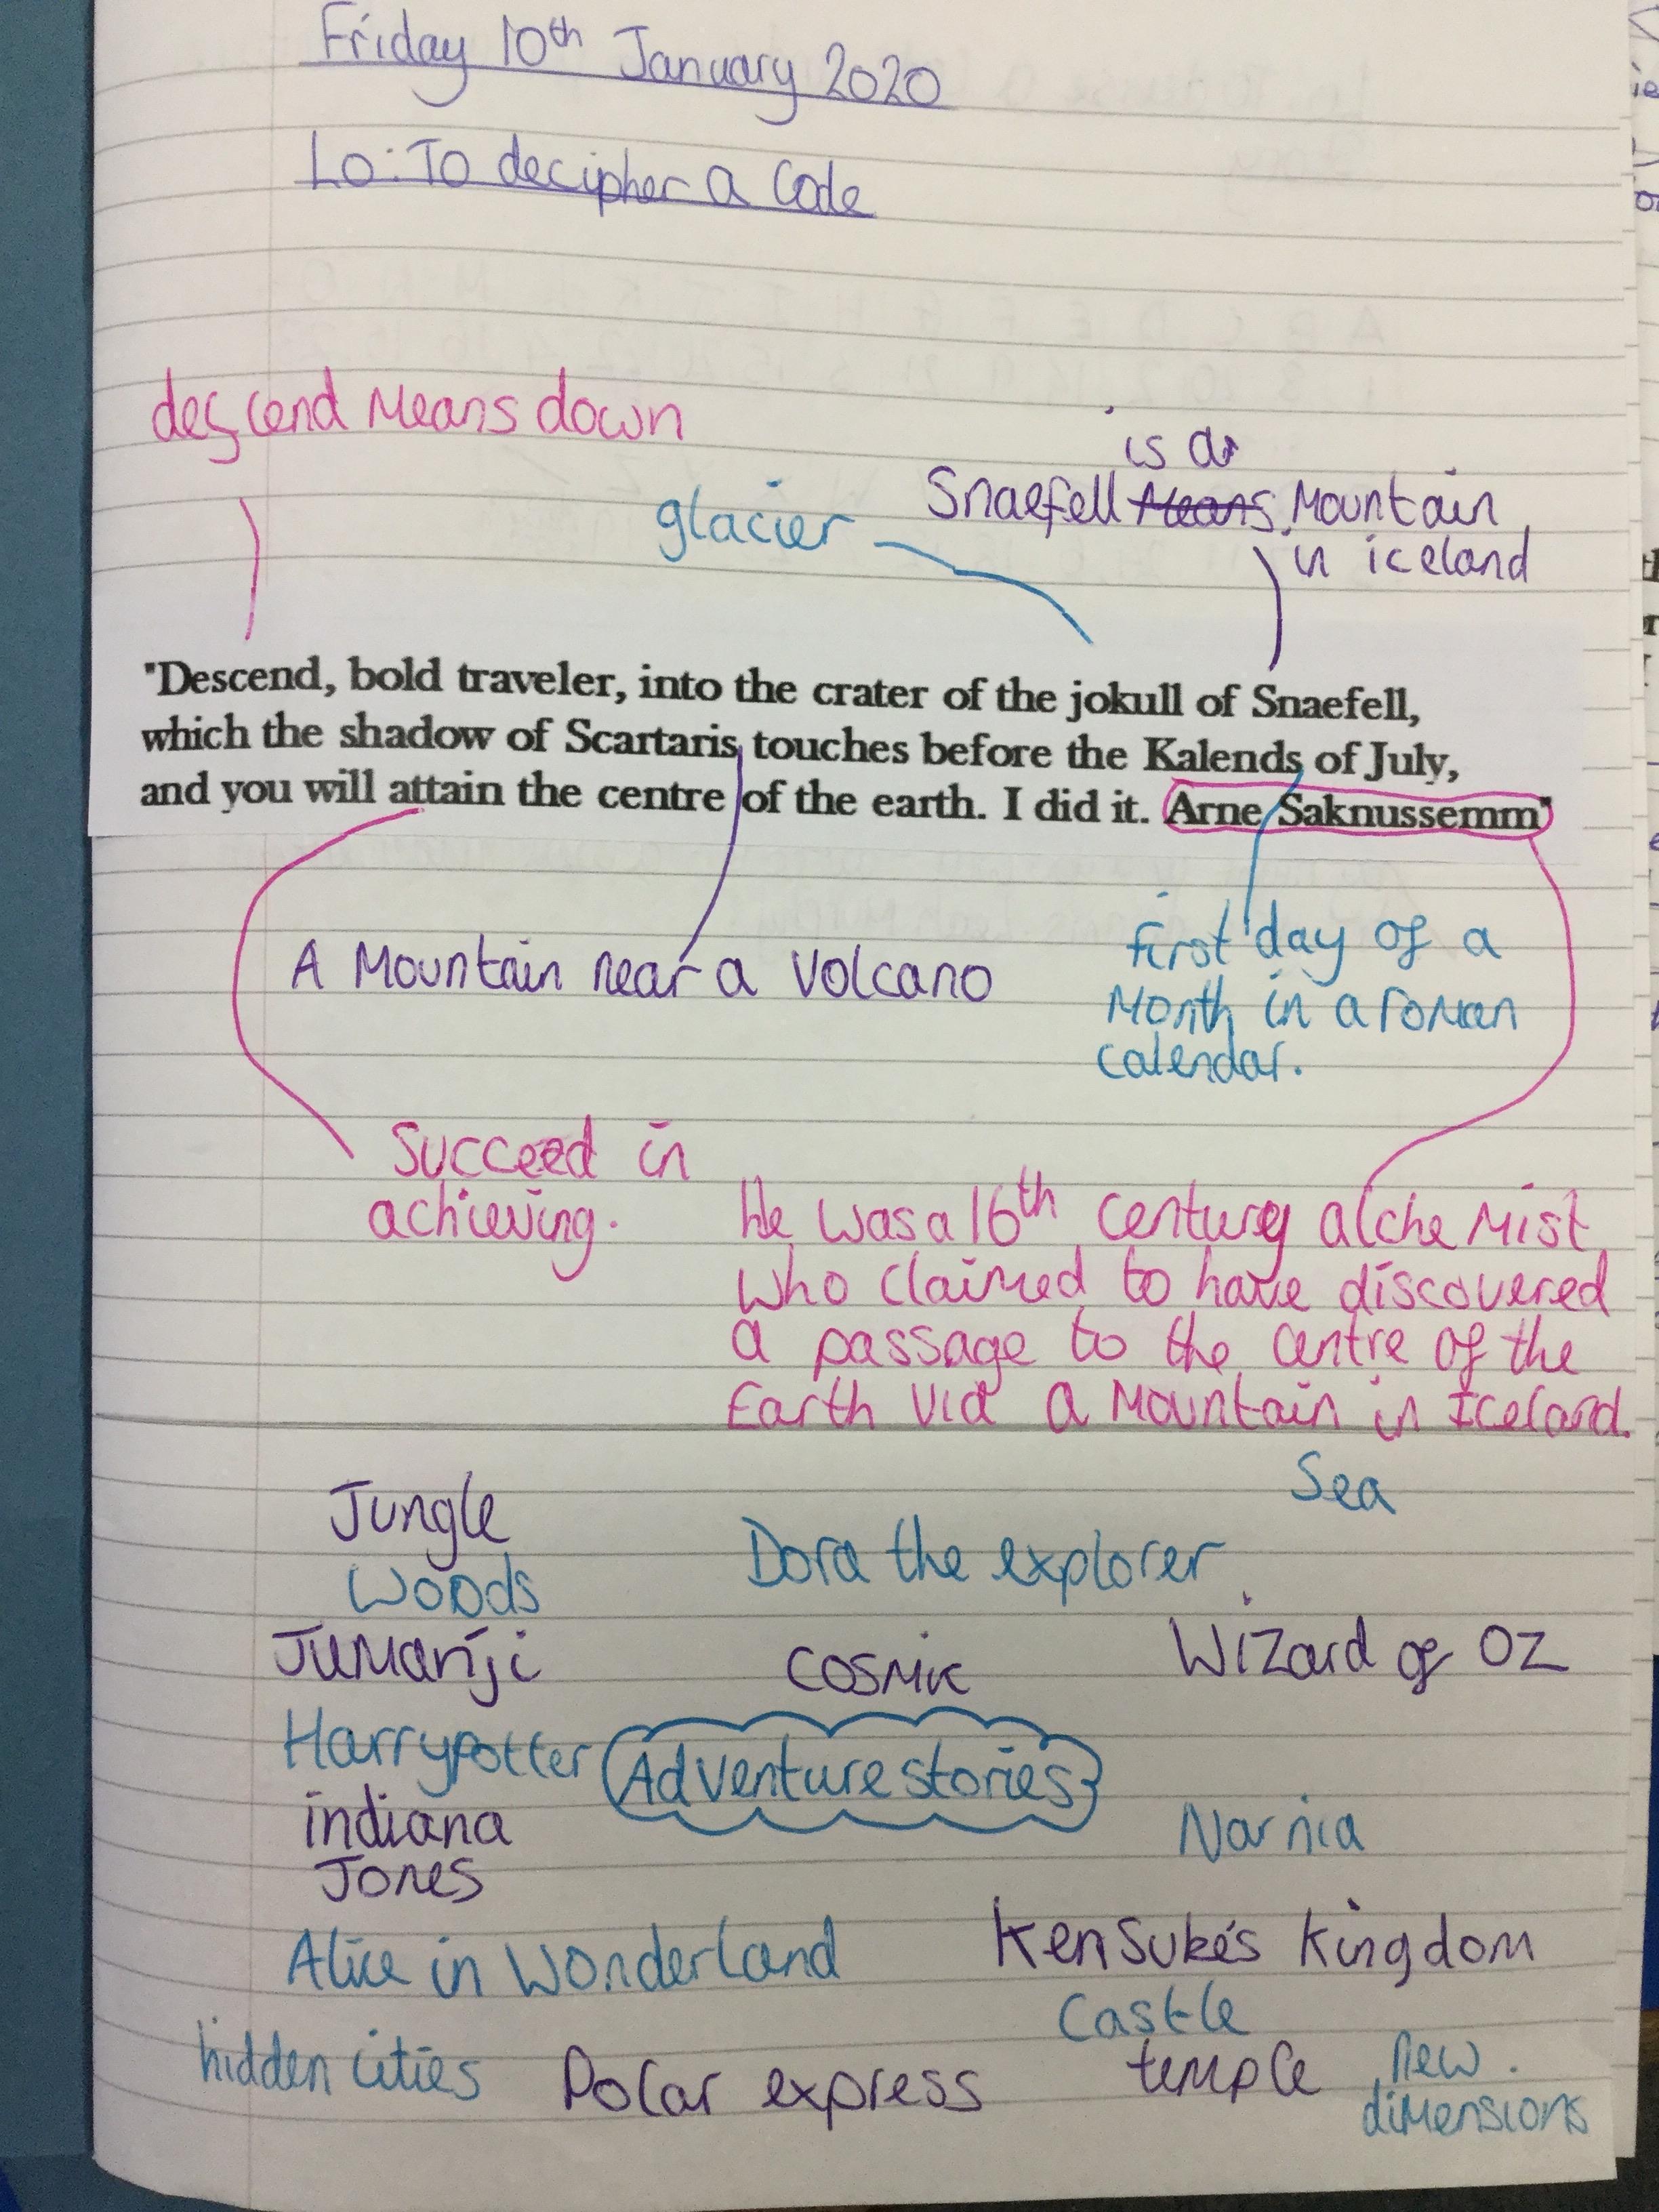 Friday 10th January 2020
Lo: To decipher a Code
descend Means down
is a
glacier
Snaefell Means Mountain
in iceland
"Descend, bold traveler, into the crater of the jokull of Snaefell,
which the shadow of Scartaris touches before the Kalends of July,
and you will attain the centre of the earth. I did it. Arne Saknussemm"
A Mountain near a Volcano
first day of a
Month in a roman
calendar.
Succeed in
achieving.
He was a 16th century alchemist
who claimed to have discovered
a passage to the centre of the
Earth via a Mountain in Iceland.
Sea
Jungle
Dora the explorer
Woods
Jumanji
Cosmic
Wizard of OZ
Harry potter
Adventure stories
indiana
Jones
Narnia
Alice in Wonderland
Kensuke's Kingdom
Castle
hidden cities
Polar express
temple
new
dimensions